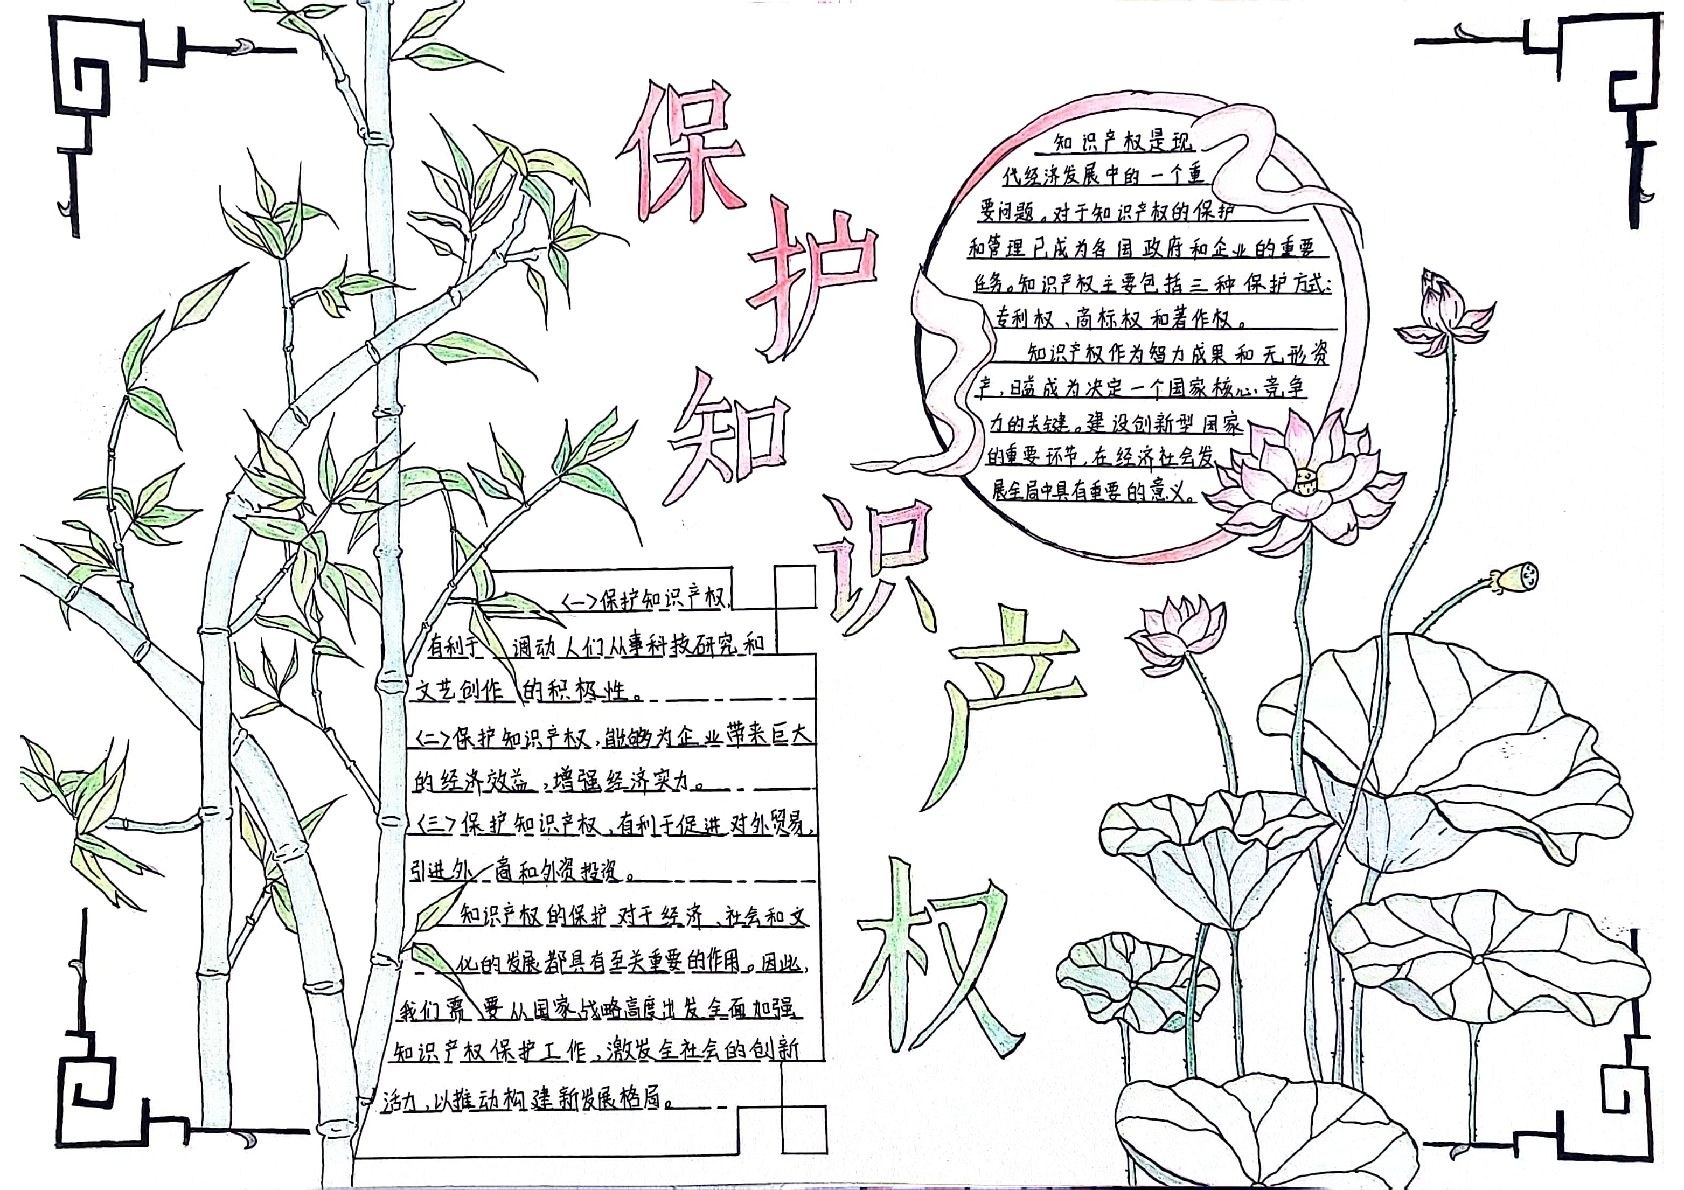 保护知识产权
知识产权是现
代经济发展中的一个重
要问题。对于知识产权的保护
和管理已成为各国政府和企业的重要
任务。知识产权主要包括三种保护方式:
专利权、商标权和著作权。
知识产权作为智力成果和无形资
产,日益成为决定一个国家核心竞争
力的关键。建设创新型国家
的重要环节,在经济社会发
展全局中具有重要的意义。
<一>保护知识产权,
有利于调动人们从事科技研究和
文艺创作的积极性。
<二>保护知识产权,能够为企业带来巨大
的经济效益,增强经济实力。
<三>保护知识产权,有利于促进对外贸易,
引进外商和外资投资。
知识产权的保护对于经济、社会和文
化的发展都具有至关重要的作用。因此,
我们需要从国家战略高度出发全面加强
知识产权保护工作,激发全社会的创新
活力,以推动构建新发展格局。